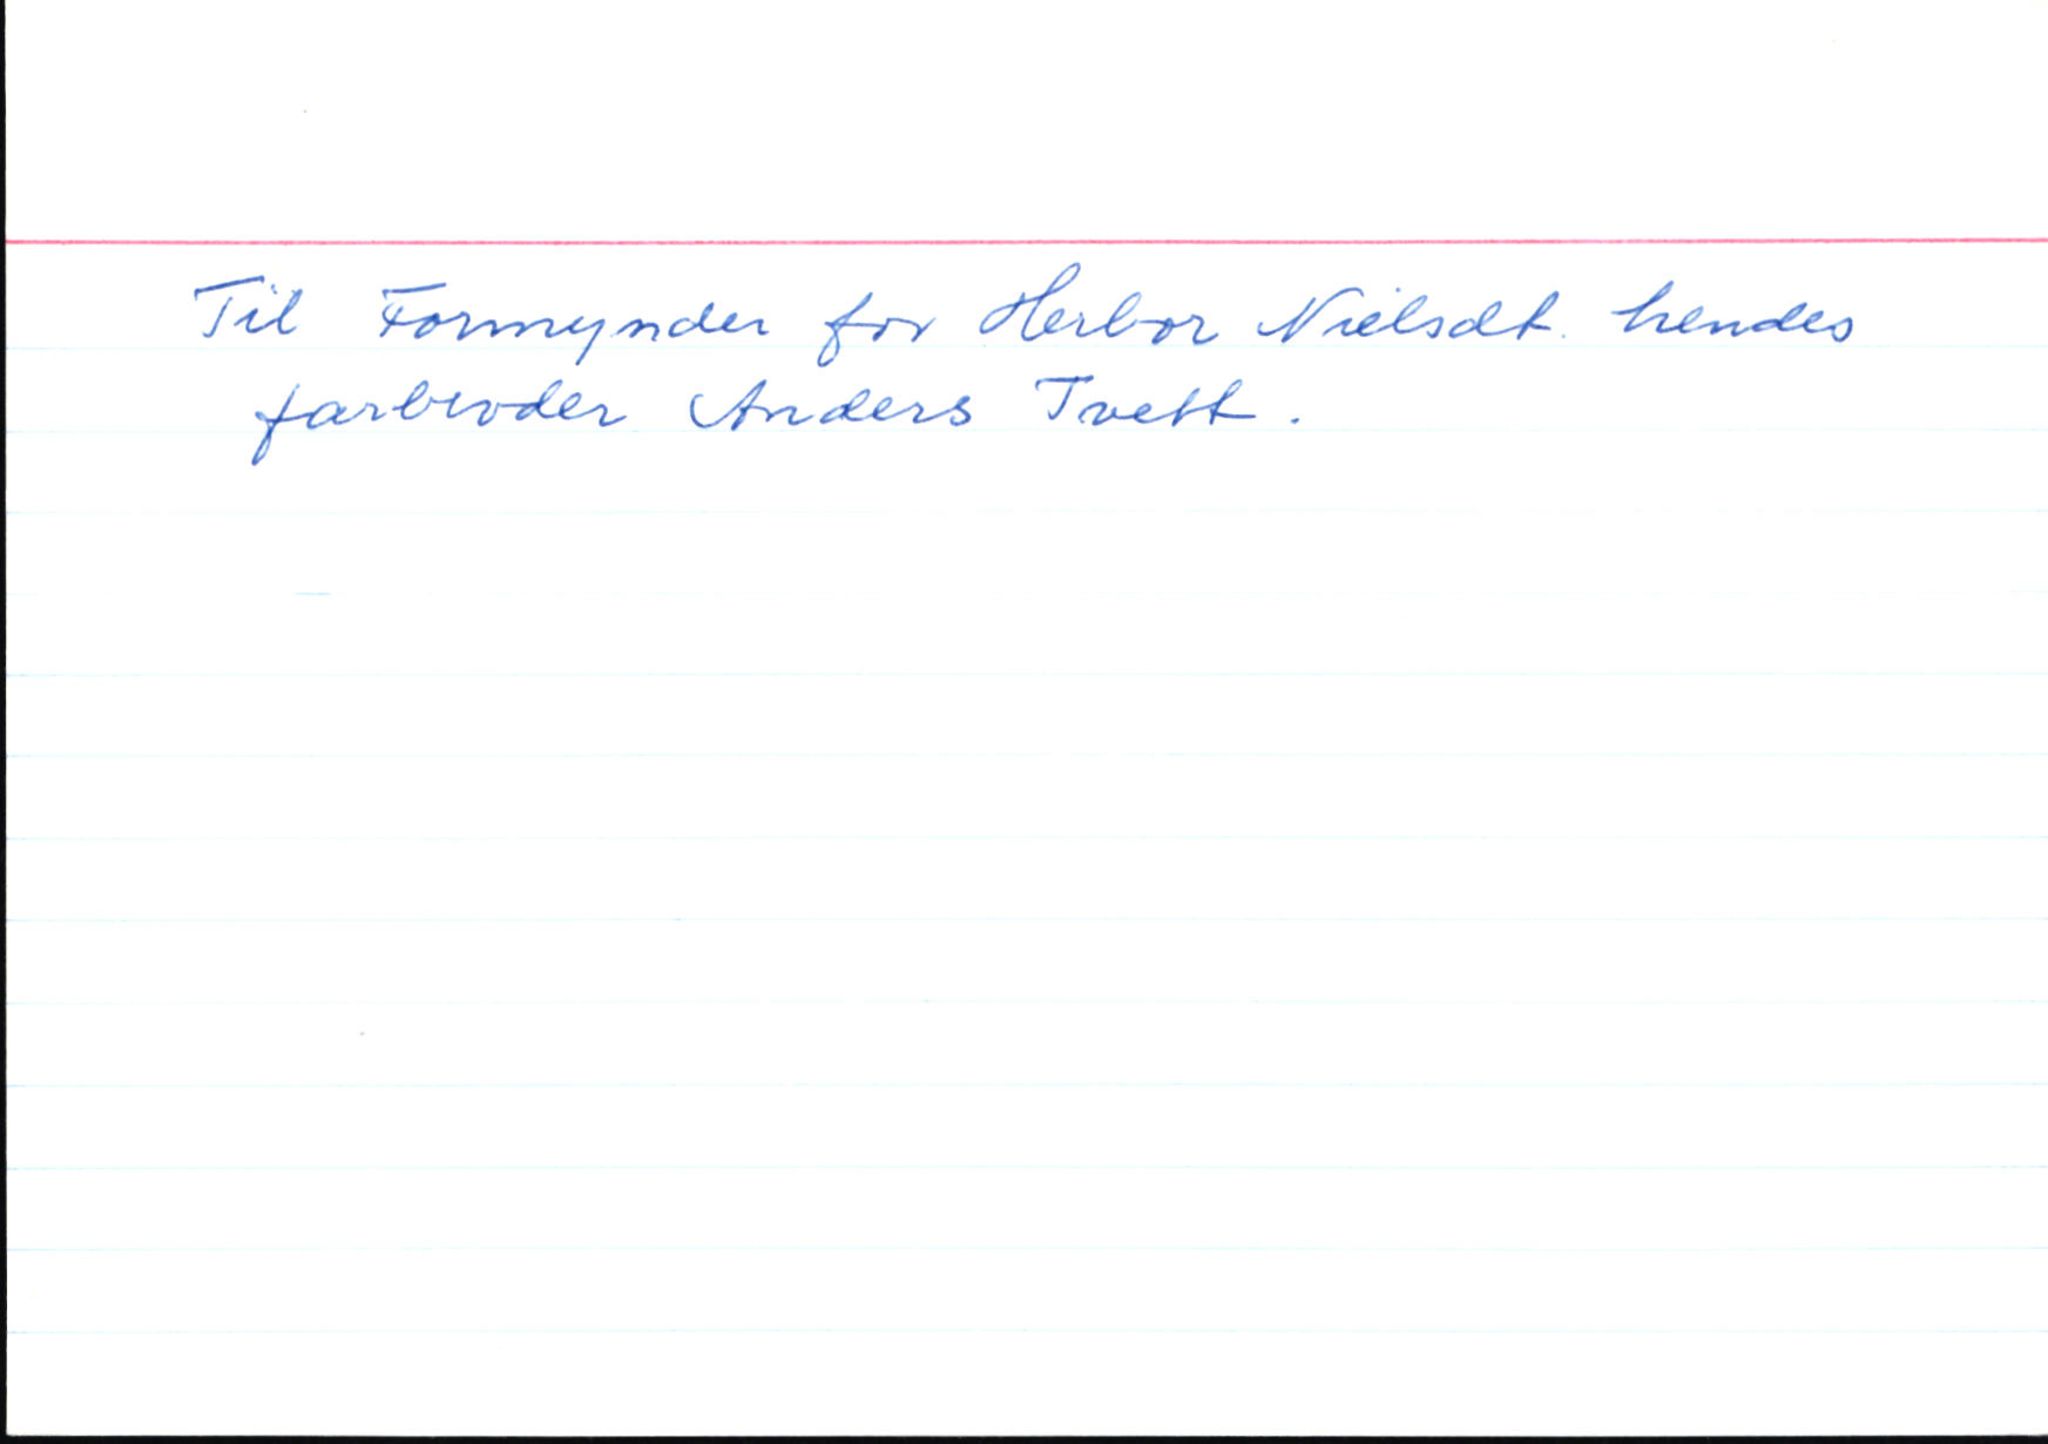 Til Formynder for Herbor Nielsdt. hendes
farbroder Anders Tvett.